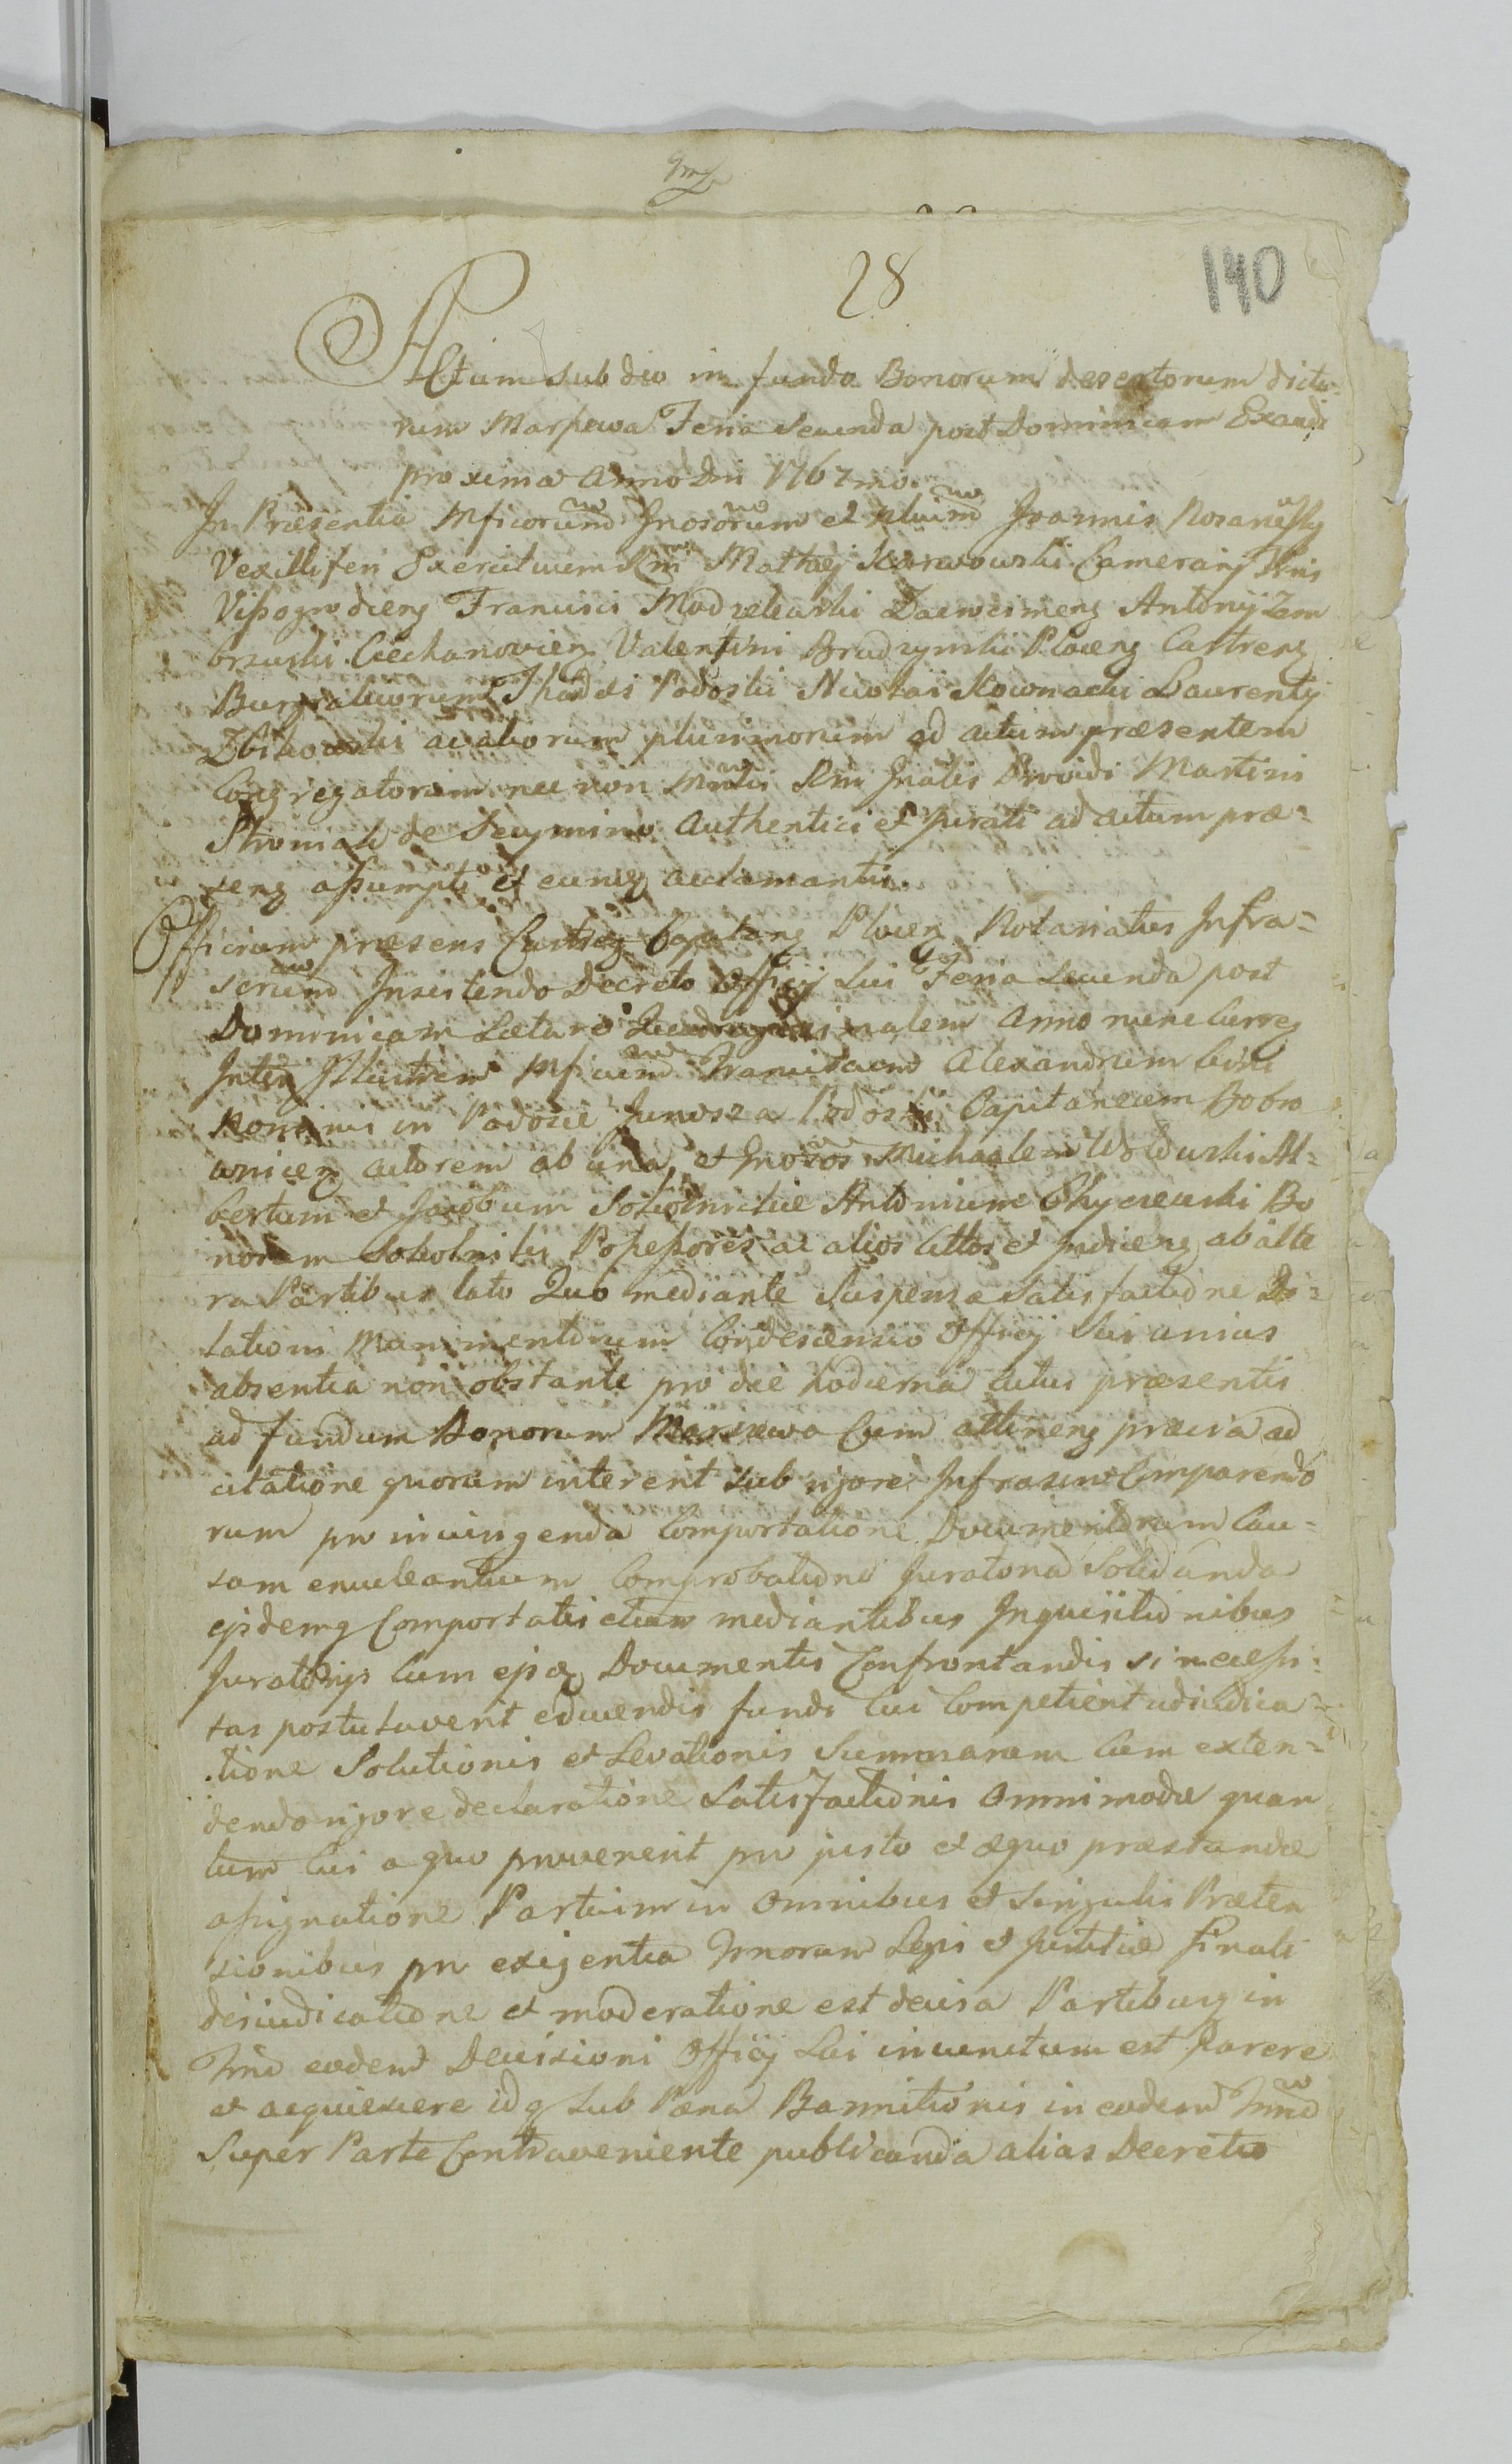 28
140
Actum sub dio in fundo Bonorum desertorum dicto-
rum Marszewo Feria secunda post Dominicam Exaudi
proxima Anno Dni 1767mo.
In Præsentia Mficorum Gnosorum et Nbilium Joannis
Vexilliferi Exercituum Rni Mathei Karwowski Camerarij Tris
Wyszogrodieng Francisci Modzelewski Antonij Zem
brzuski Ciechanovieng Valentini Brudzynski Ploceng Castreng
Burgrabiorum Thadei Podoski Nicolai Kownacki Laurentij
Zbikowski ac aliorum plurimorum ad actum præsentem
Congregatorum nec non Mrlis Rni Gnalis Providi Martini
de Authentici et Jurati ad actum præ-
seng assumpti et eumq acclamantis.
Officium præsens Castreg Capitang Ploceng Notariatus Infra-
scrum Insistendo Decreto Officij Sui Feria Secunda post
Dominicam Lætare Quadragesimalem Anno nunc curreg
Inter Illustrem Mficum Franciscum Alexandrum binu
Nominis in Podosie Junosza Podoski Capitaneum Dobro
wniceng actorem ab una, et Gnosos Michaelem Woldurski Al-
bertum et Jacobum Sokolnickie Antonium Chyczewski Bo
norum Sokolniki Possessores ac alios Cittos et Indieng ab alte
ra Partibus lato Quo mediante Suspensæ Satisfactione
lationi Munimentorum Condescensio Officij Sui unius
absentia non obstante pro die hodierna actus præsentis
ad fundum Bonorum Marszewo Cum attineng prævia ad
citatione quorum intererit sub rigore Infrascr Comparendo
rum pro iniungenda Comportatione Documentorum Cau-
sam enucleantium Comprobatione Juratoria Solidanda
ejsdemq Comportatis etiam mediantibus Inquisitionibus
Juratorijs Cum ejsdem Documentis Confrontandis si necessi-
tas postulaverit educendis fundi cui Competierit adiudica-
tione Solutionis et Levationis Summarum Cum exten-
dendo rigore declaratione Satisfactionis omnimodæ quan
tum cui a quo provenerit pro justo et æquo præstandæ
assignatione Partium in omnibus et Singulis Præten
sionibus pro exigentia Tmnorum Legis et Justitiæ finali
desiudicatione et moderatione est decisa Partibusq in
Tmo eodem Decisioni Officij Sui iniunctum est Parere
et acquiescere idq sub Pæna Bannitionis in eodem Tmno
Super Parte Contraveniente publicanda alias Decreto